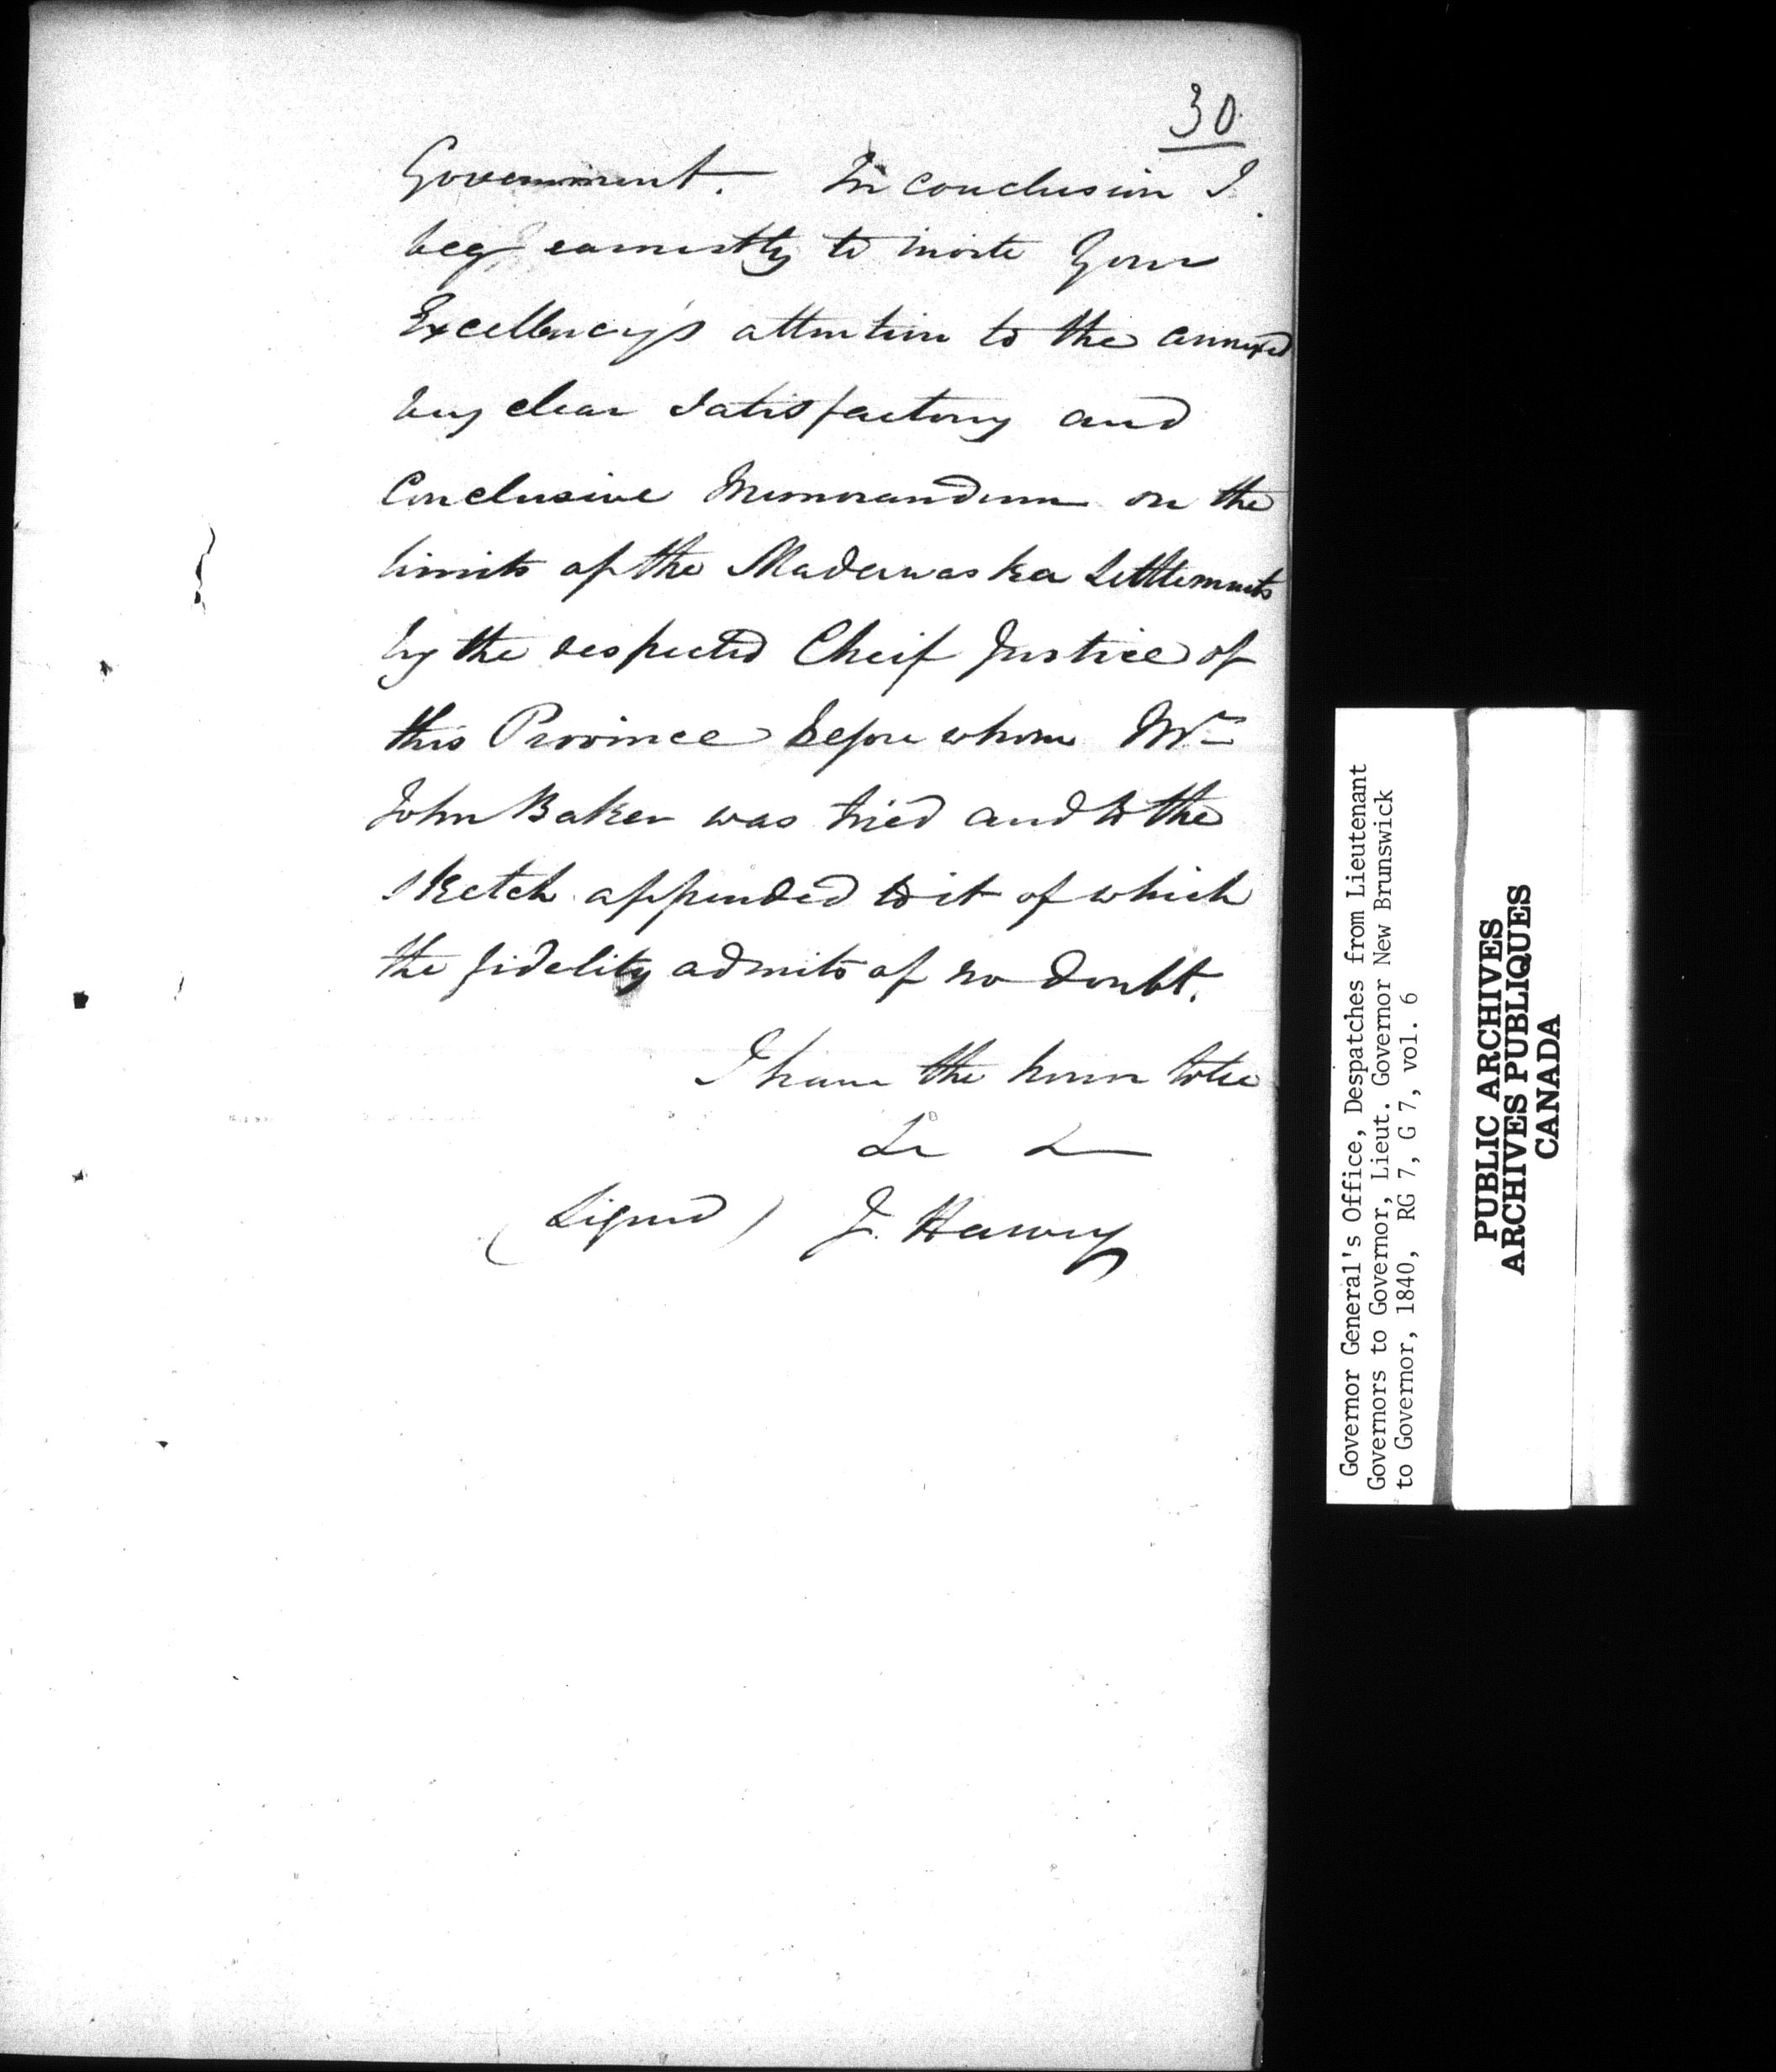 30
Government. In conclusion I
beg earnestly to invite Your
Excellency's attention to the annexed
very clear satisfactory and
Conclusive Memorandum on the
limits of the Madawaska Settlements
by the respected Cheif Justice of
this Province before whom Mr
John Baker was tried and to the
sketch appended to it of which
the fidelity admits of no doubt.
I have the honor to be
&c &c
(Signed) J. Harvey
Governor General's Office, Despatches from Lieutenant
Governors to Governor, Lieut. Governor New Brunswick
to Governor, 1840, RG 7, G 7, vol. 6
PUBLIC ARCHIVES
ARCHIVES PUBLIQUES
CANADA